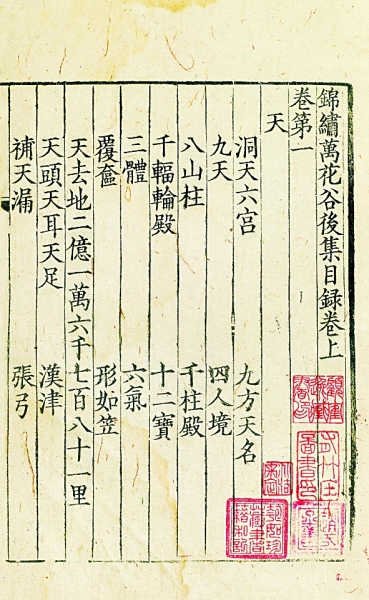 錦繡萬花谷後集目録卷上
卷第一
天
洞天六宫　九方天名
九天　四人境
八山柱　千柱殿
千輻輪殿　十二寶
三體　六氣
覆奩　形如笠
天去地二億一萬六千七百八十一里
天頭天耳天足　漢津
補天漏　張弓